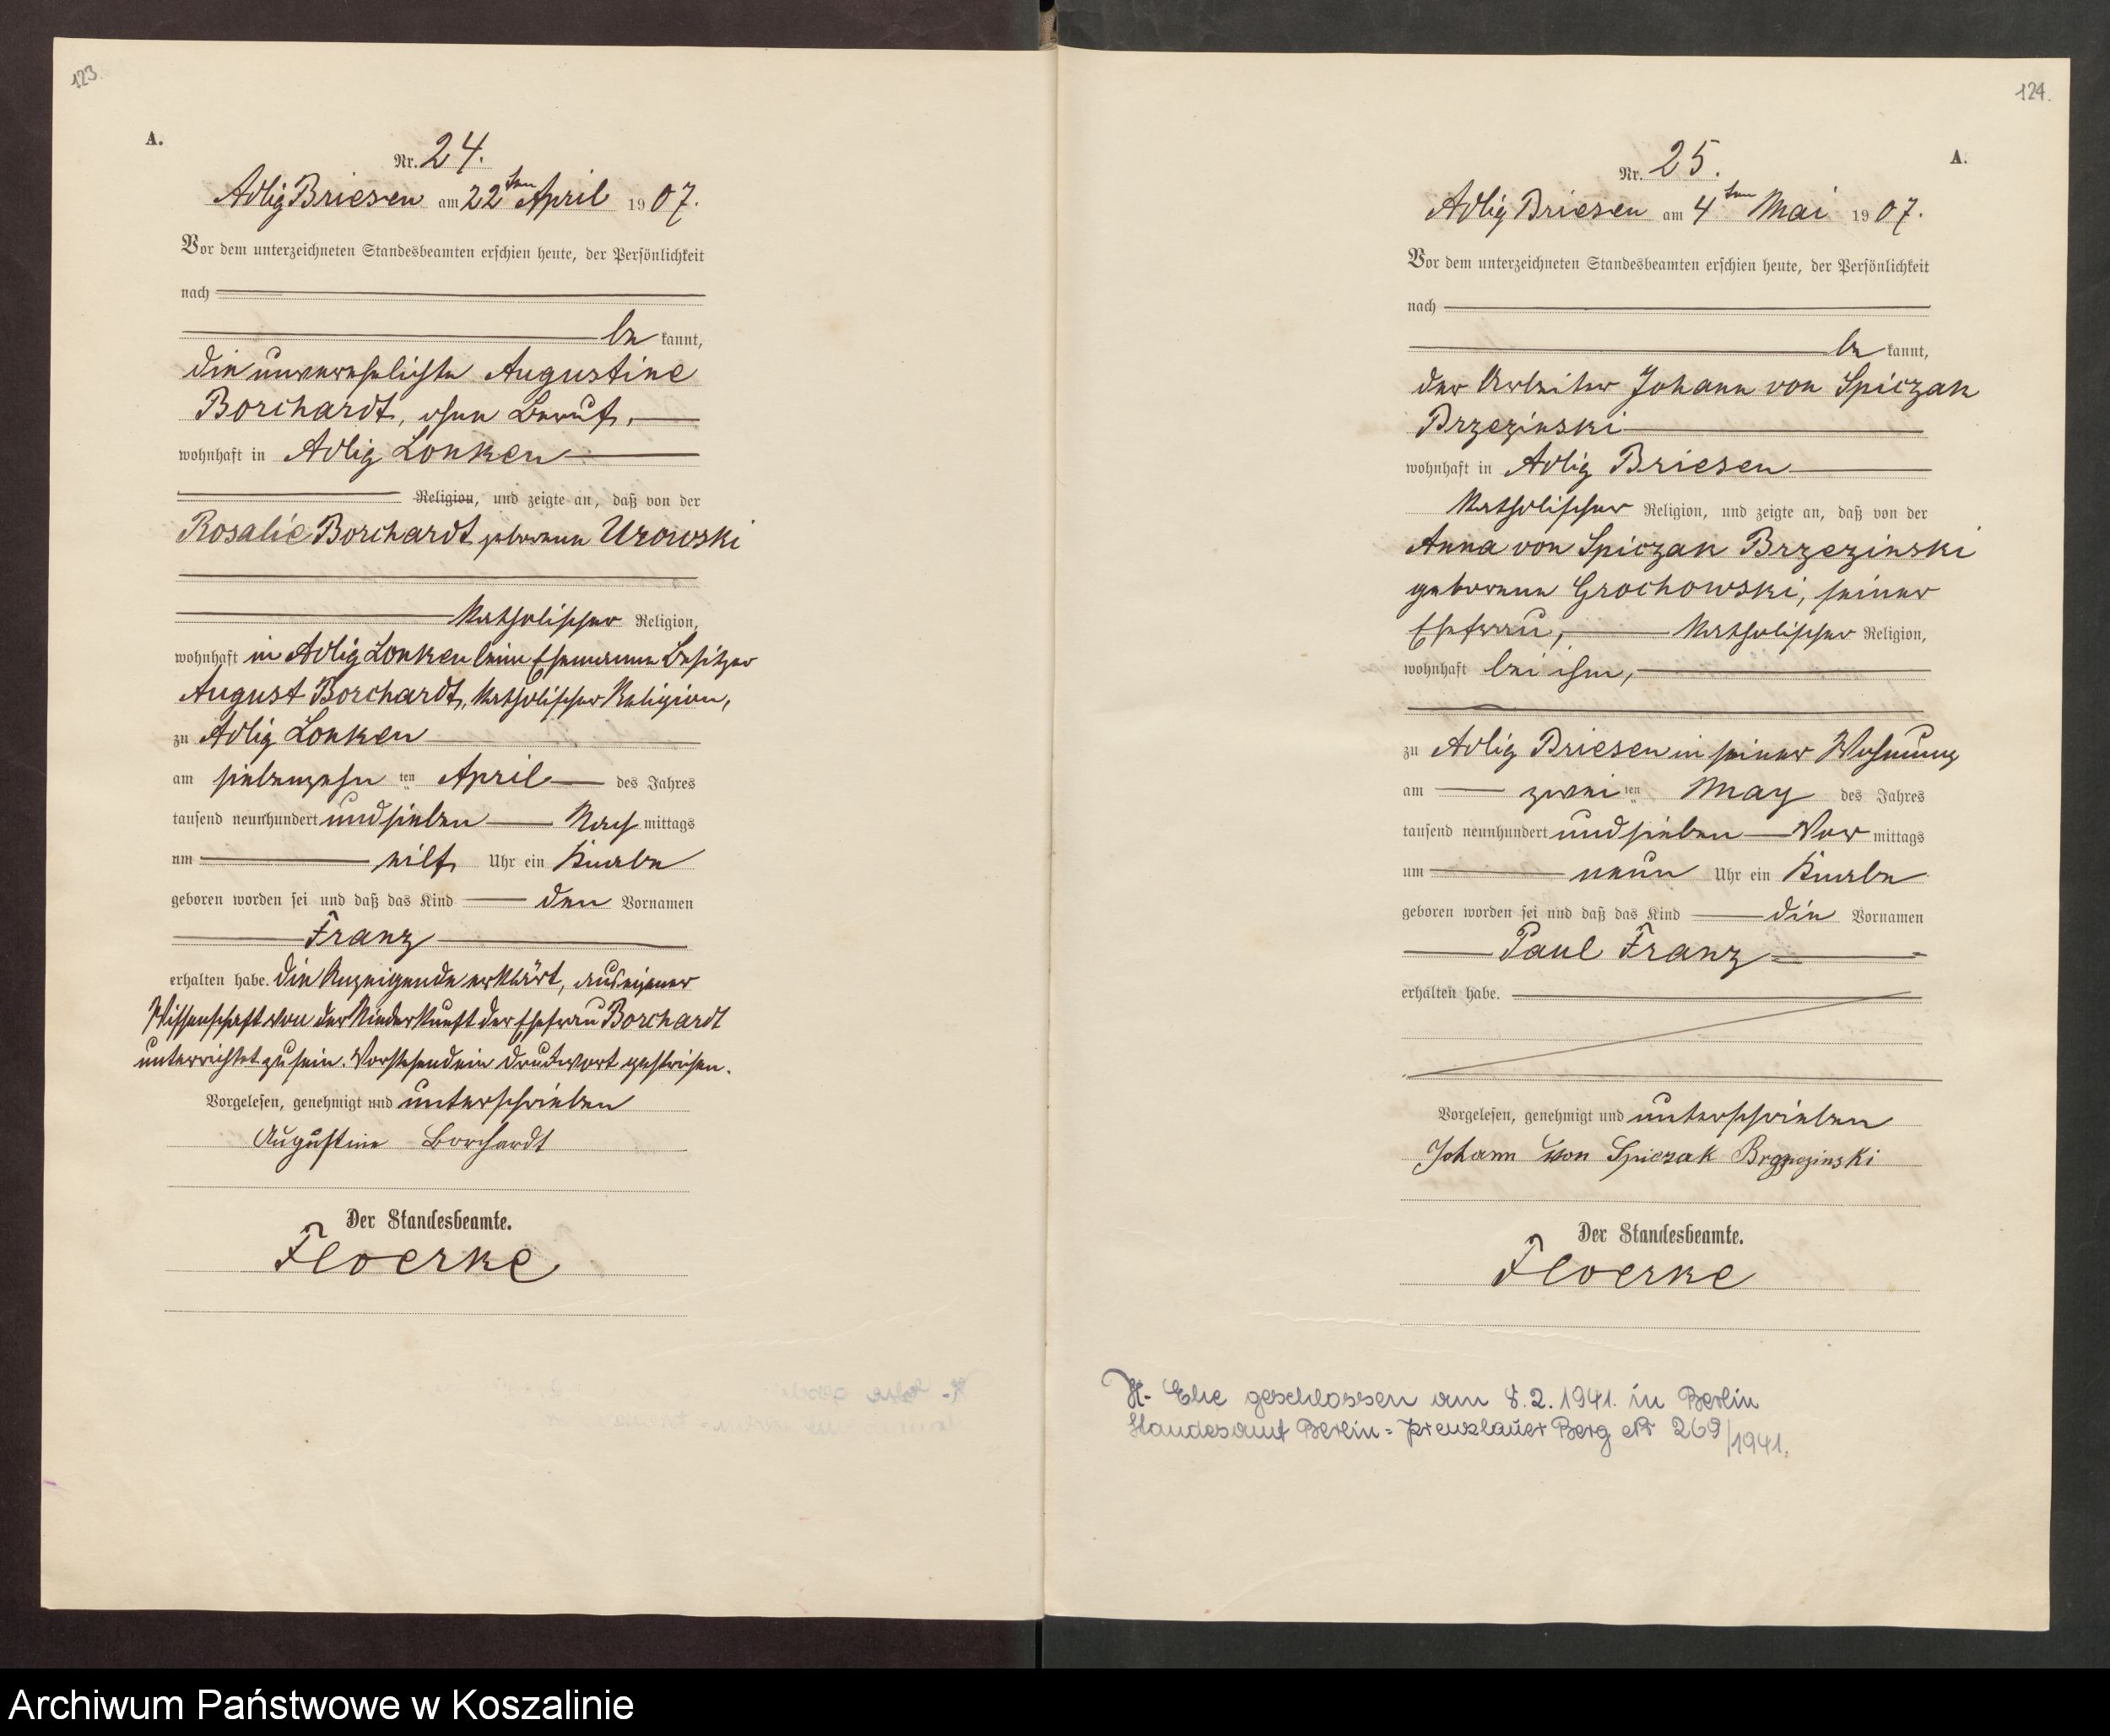 123.
A.
Nr. 24.
Adlig Briesen am 22ten April 1907.
Vor dem unterzeichneten Standesbeamten erschien heute, der Persönlichkeit
nach
be kannt,
die unverehelichte Augustine
Borchardt, ohne Beruf,
wohnhaft in Adlig Lonken
Religion, und zeigte an, daß von der
Rosalie Borchardt geborene Urowski
katholischer Religion,
wohnhaft in Adlig Lonken beim Ehemanne Besitzer
August Borchardt, katholischer Religion,
zu Adlig Lonken
am siebenzehn ten April des Jahres
tausend neunhundert und sieben Nach mittags
um elf Uhr ein Knabe
geboren worden sei und daß das Kind den Vornamen
Franz
erhalten habe. Die Anzeigende erklärt, aus eigener
Wissenschaft von der Niederkunft der Ehefrau Borchardt
unterrichtet zu sein. Vorstehend ein Druckwort gestrichen.
Vorgelesen, genehmigt und unterschrieben
Augustine Borchardt
Der Standesbeamte.
Floerke
124.
A.
Nr. 25.
Adlig Briesen am 4ten Mai 1907.
Vor dem unterzeichneten Standesbeamten erschien heute, der Persönlichkeit
nach
be kannt,
der Arbeiter Johann von Spiczak
Brzezinski
wohnhaft in Adlig Briesen
katholischer Religion, und zeigte an, daß von der
Anna von Spiczak Brzezinski
geborene Grochowski, seiner
Ehefrau, katholischer Religion,
wohnhaft bei ihm,
zu Adlig Briesen in seiner Wohnung
am zwei ten May des Jahres
tausend neunhundert und sieben Vor mittags
um neun Uhr ein Knabe
geboren worden sei und daß das Kind die Vornamen
Paul Franz
erhalten habe.
Vorgelesen, genehmigt und unterschrieben
Johann von Spiczak Brzezinski
Der Standesbeamte.
Floerke
H. Ehe geschlossen am 8.2.1941. in Berlin
Standesamt Berlin-Prenzlauer Berg Nr 269/1941.
Archiwum Państwowe w Koszalinie